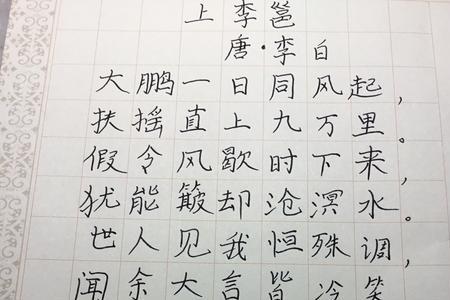 上李邕
唐·李白
大鹏一日同风起，
扶摇直上九万里。
假令风歇时下来，
犹能簸却沧溟水。
世人见我恒殊调，
闻余大言皆冷笑